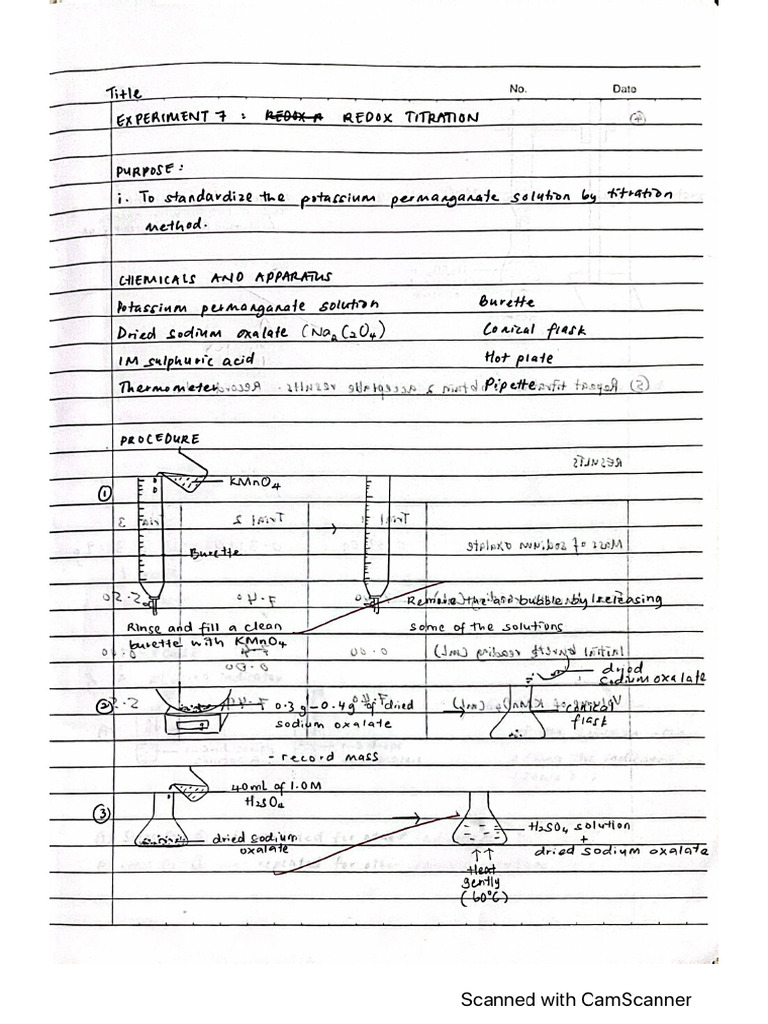 Title
No.
Date
EXPERIMENT 7 : REDOX A REDOX TITRATION
4
PURPOSE :
i. To standardize the potassium permanganate solution by titration
method.
CHEMICALS AND APPARATUS
Potassium permanganate solution Burette
Dried sodium oxalate (Na2C2O4) Conical flask
1M sulphuric acid Hot plate
Thermometer Pipette
PROCEDURE
1
KMnO4
Burette
Rinse and fill a clean
burette with KMnO4
Remove the air bubble by releasing
some of the solutions
2
0.3g - 0.4g of dried
sodium oxalate
- record mass
dried
sodium oxalate
conical
flask
3
40mL of 1.0M
H2SO4
dried sodium
oxalate
H2SO4 solution
+
dried sodium oxalate
Heat
gently
(60°C)
Scanned with CamScanner